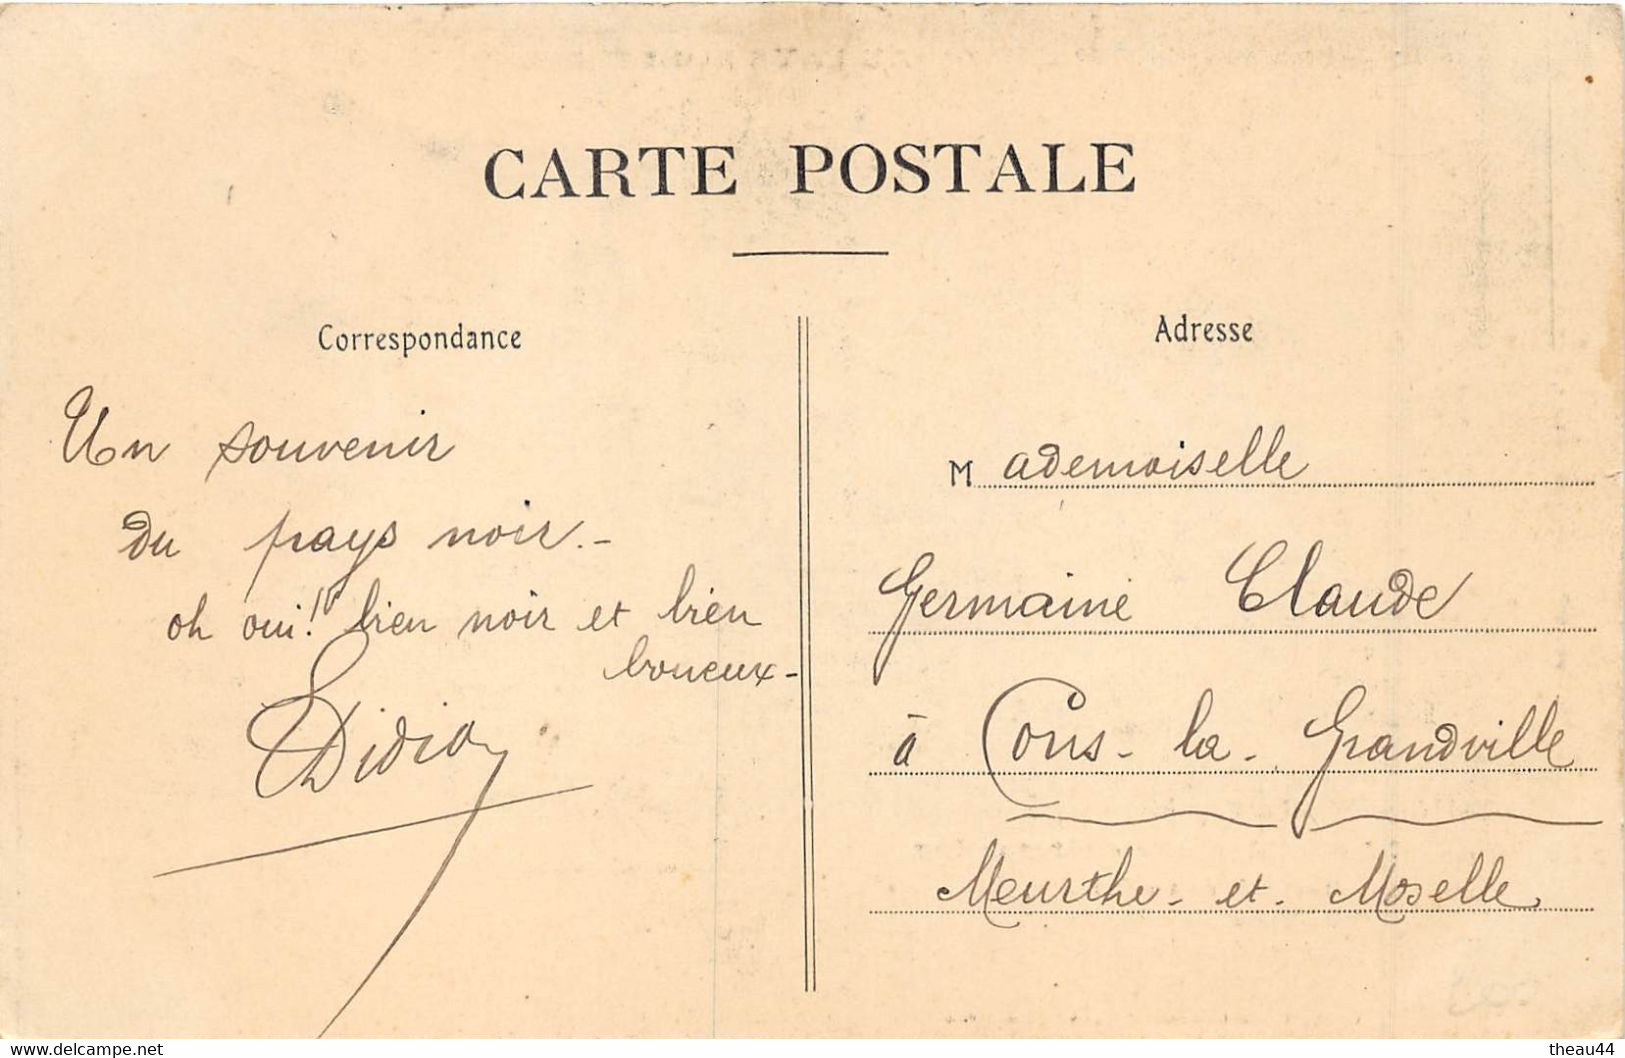 CARTE POSTALE
Correspondance
Un souvenir
du pays noir.-
oh oui! bien noir et bien
boueux-
Adresse
Mademoiselle
Germaine Claude
à Cons-la-Grandville
Meurthe-et-Moselle
www.delcampe.net
theau44